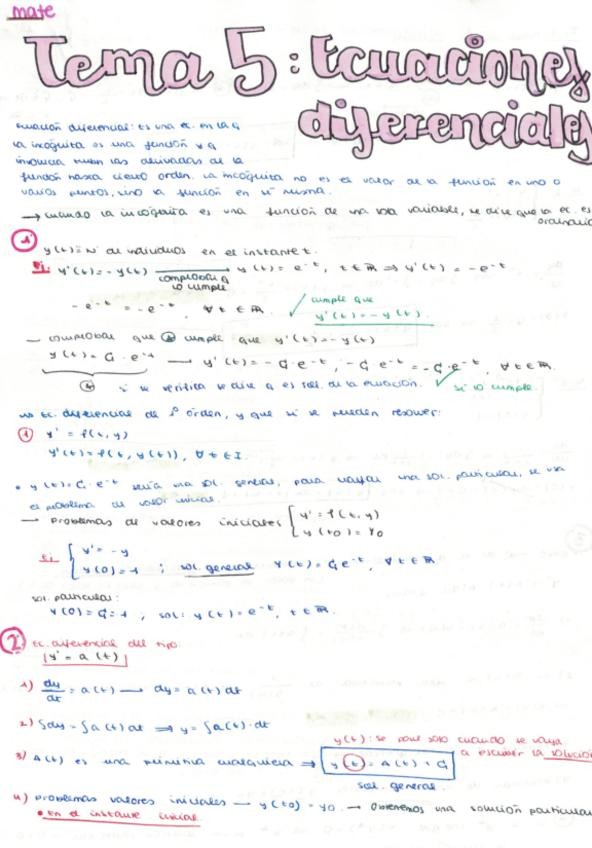 mate
Tema 5: Ecuaciones
diferenciales
Ecuación diferencial: Es una ec. en la q
la incógnita es una función y q
involucra las derivadas de la
función hasta cierto orden. La incógnita no es el valor de la función en uno o
varios puntos, sino la función en sí misma.
→ cuando la incógnita es una función de una sola variable, se dice que la ec. es
ordinaria
1 y(t)= Nº de individuos en el instante t.
Ej: y'(t)=-y(t) → y(t) = e^-t, t∈ℝ ⇒ y'(t) = -e^-t
comprobar q
lo cumple
-e^-t = -e^-t, ∀t∈ℝ. ✓ cumple que
y'(t)=-y(t).
— comprobar que cumple que y'(t)=-y(t)
y(t)=C·e^-t → y'(t)=-C·e^-t, -C·e^-t = -C·e^-t, ∀t∈ℝ.
si se verifica se dice q es sol. de la ecuación. ✓ sí lo cumple
Ec. diferencial de 1º orden, y que sí se pueden resolver:
1 y' = f(t,y)
y'(t)=f(t,y(t)), ∀t∈I
• y(t)=C·e^-t sería una sol. general, para una sol. particular, se usa
el problema de valor inicial.
→ Problemas de valores iniciales { y' = f(t,y)
y(t0)=y0
Ej. { y'=-y
y(0)=1 ; sol. general y(t)=Ce^-t, ∀t∈ℝ
sol. particular:
y(0)=C=1 ; sol: y(t)=e^-t, t∈ℝ.
2 Ec. diferencial del tipo:
y' = a(t)
1) dy/dt = a(t) → dy = a(t)dt
2) ∫dy=∫a(t)dt ⇒ y=∫a(t)·dt
y(t): se pone sólo cuando se vaya
a escribir la solución
3) A(t) es una primitiva cualquiera ⇒ y(t)=A(t)+C
sol. general.
4) problemas valores iniciales → y(t0)=y0 → Obtenemos una solución particular
• En el instante inicial.